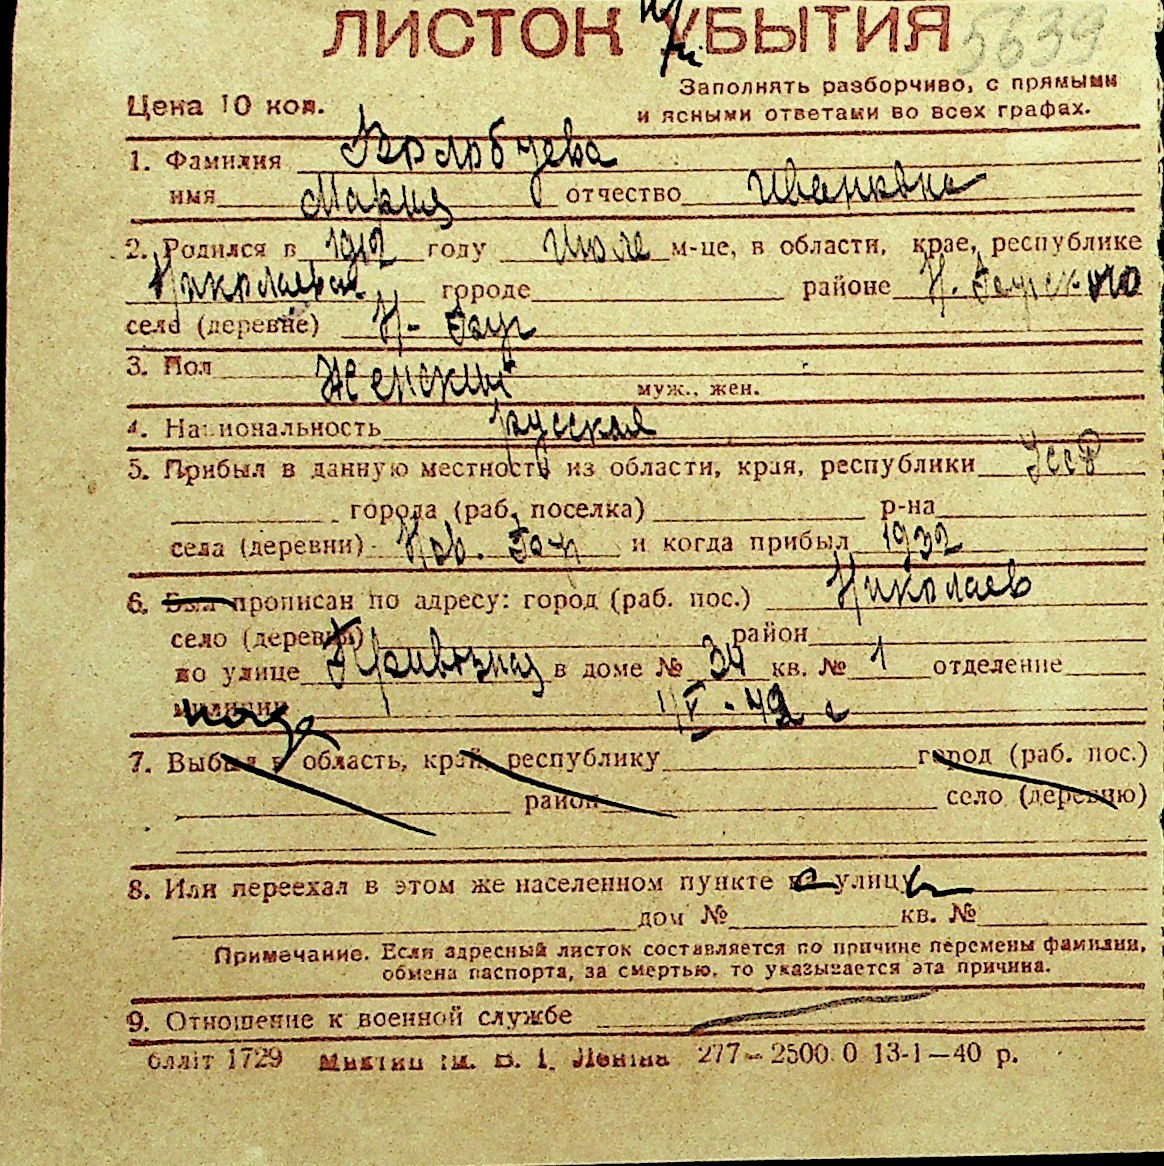 ЛИСТОК УБЫТИЯ 5639
Заполнять разборчиво, с прямыми
Цена 10 коп. и ясными ответами во всех графах.
1. Фамилия
имя Мария отчество Ивановна
2. Родился в 1912 году Июле м-це, в области, крае, республике
Николаевская городе районе Н.
село (деревне) Н-
3. Пол Женский муж., жен.
4. Национальность русская
5. Прибыл в данную местность из области, края, республики УССР
города (раб. поселка) р-на
села (деревни) Нов. и когда прибыл 1932
6. Был прописан по адресу: город (раб. пос.) Николаев
село (деревня) район
по улице Привозная в доме № 34 кв. № 1 отделение
милиции
7. Выбыл в область, край, республику город (раб. пос.)
район село (деревню)
8. Или переехал в этом же населенном пункте с улицы
дом № кв. №
Примечание. Если адресный листок составляется по причине перемены фамилии,
обмена паспорта, за смертью, то указывается эта причина.
9. Отношение к военной службе
блліт 1729 Миктип ім. В. І. Леніна 277—2500 0 13-1—40 р.